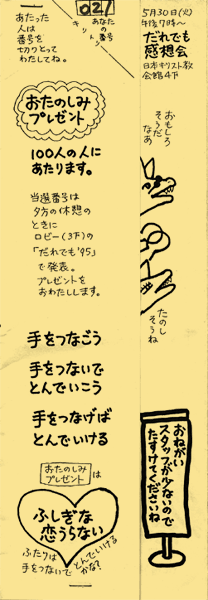 あたった
人は
番号を
切りとって
わたしてね。
キリトリ
021
あなた
の番号
おたのしみ
プレゼント
100人の人に
あたります。
当選番号は
夕方の休憩の
ときに
ロビー(3F)の
「だれでも'95」
で発表。
プレゼントを
おわたしします。
手をつなごう
手をつないで
とんでいこう
手をつなげば
とんでいける
おたのしみ
プレゼントは
ふしぎな
恋うらない
ふたりは
手をつないでとんでいける
かな?
5月30日(火)
午後7時〜
だれでも
感想会
日本キリスト教
会館4F
おもしろ
そうだ
なあ
たのし
そうね
おねがい
スタッフが少ないので
たすけてくださいね